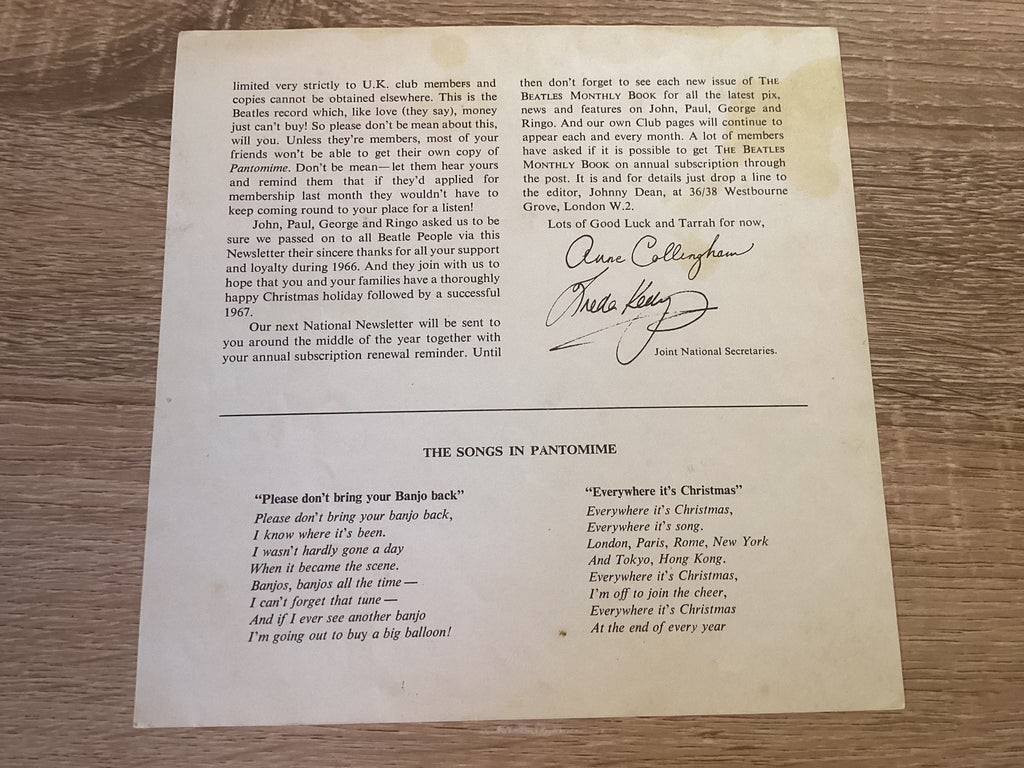 limited very strictly to U.K. club members and
copies cannot be obtained elsewhere. This is the
Beatles record which, like love (they say), money
just can't buy! So please don't be mean about this,
will you. Unless they're members, most of your
friends won't be able to get their own copy of
Pantomime. Don't be mean—let them hear yours
and remind them that if they'd applied for
membership last month they wouldn't have to
keep coming round to your place for a listen!
John, Paul, George and Ringo asked us to be
sure we passed on to all Beatle People via this
Newsletter their sincere thanks for all your support
and loyalty during 1966. And they join with us to
hope that you and your families have a thoroughly
happy Christmas holiday followed by a successful
1967.
Our next National Newsletter will be sent to
you around the middle of the year together with
your annual subscription renewal reminder. Until
then don't forget to see each new issue of THE
BEATLES MONTHLY BOOK for all the latest pix,
news and features on John, Paul, George and
Ringo. And our own Club pages will continue to
appear each and every month. A lot of members
have asked if it is possible to get THE BEATLES
MONTHLY BOOK on annual subscription through
the post. It is and for details just drop a line to
the editor, Johnny Dean, at 36/38 Westbourne
Grove, London W.2.
Lots of Good Luck and Tarrah for now,
Anne Collingham
Freda Kelly
Joint National Secretaries.
THE SONGS IN PANTOMIME
"Please don't bring your Banjo back"
Please don't bring your banjo back,
I know where it's been.
I wasn't hardly gone a day
When it became the scene.
Banjos, banjos all the time—
I can't forget that tune—
And if I ever see another banjo
I'm going out to buy a big balloon!
"Everywhere it's Christmas"
Everywhere it's Christmas,
Everywhere it's song.
London, Paris, Rome, New York
And Tokyo, Hong Kong.
Everywhere it's Christmas,
I'm off to join the cheer,
Everywhere it's Christmas
At the end of every year